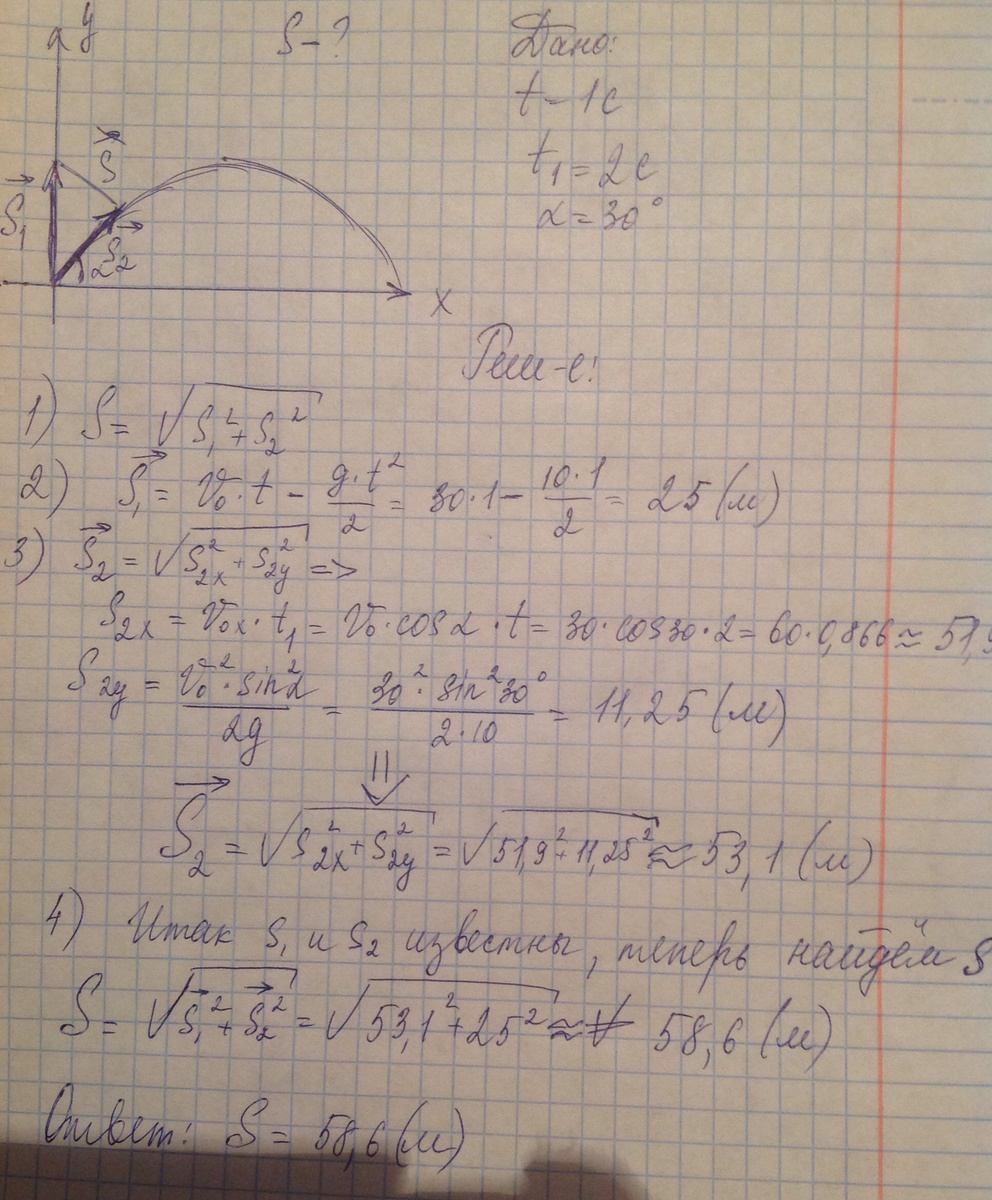 y
S-?
Дано:
t-1c
t₁=2c
α=30°
S⃗
S⃗₁
S⃗₂
α
x
Реш-е:
1) S= √(S₁²+S₂²)
2) S⃗₁= V₀·t - (g·t²)/2 = 30·1- (10·1)/2 = 25 (м)
3) S⃗₂=√(S₂ₓ²+S₂y²) =>
S₂ₓ = V₀ₓ·t₁= V₀·cosα·t= 30·cos30·2= 60·0,866≈51,9
S₂y = (V₀²·sin²α)/(2g) = (30²·sin²30°)/(2·10) = 11,25 (м)
⇓
S⃗₂ = √(S₂ₓ²+S₂y²) = √(51,9²+11,25²) ≈ 53,1 (м)
4) Итак S₁ и S₂ известны, теперь найдём S
S= √(S⃗₁²+S⃗₂²) = √(53,1²+25²) ≈ 58,6 (м)
Ответ: S= 58,6 (м)